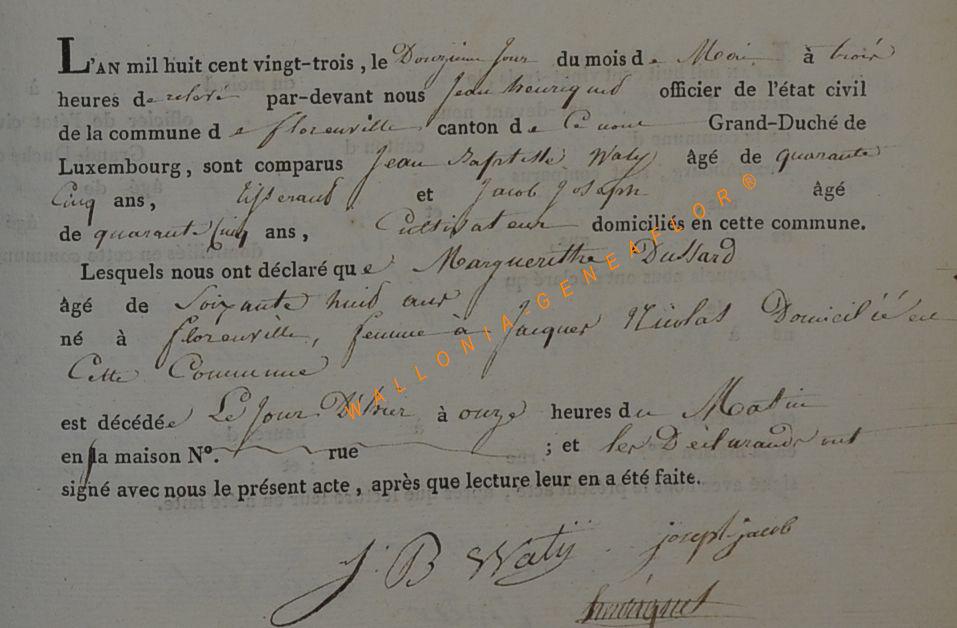 L'AN mil huit cent vingt-trois, le Douzieme Jour du mois de Mai à trois
heures de relevé par-devant nous Jean henriquet officier de l'état civil
de la commune de florenville canton de Grand-Duché de
Luxembourg, sont comparus Jean Baptiste Waty âgé de quarante
Cinq ans, Tisserand et Jacob Joseph âgé
de quarante Cinq ans, Cultivateur domiciliés en cette commune.
Lesquels nous ont déclaré que Marguerithe Dussard
âgé de Soixante huid ans
né à florenville, femme à Jacques Nicolas Domiciliée en
Cette Commune
est décédée Le Jour D'hier à onze heures du Matin
en la maison N°. rue ; et les Déclarands ont
signé avec nous le présent acte, après que lecture leur en a été faite.
J. B Waty joseph jacob
henriquet
WALLONIA-GENEAFLOR ®